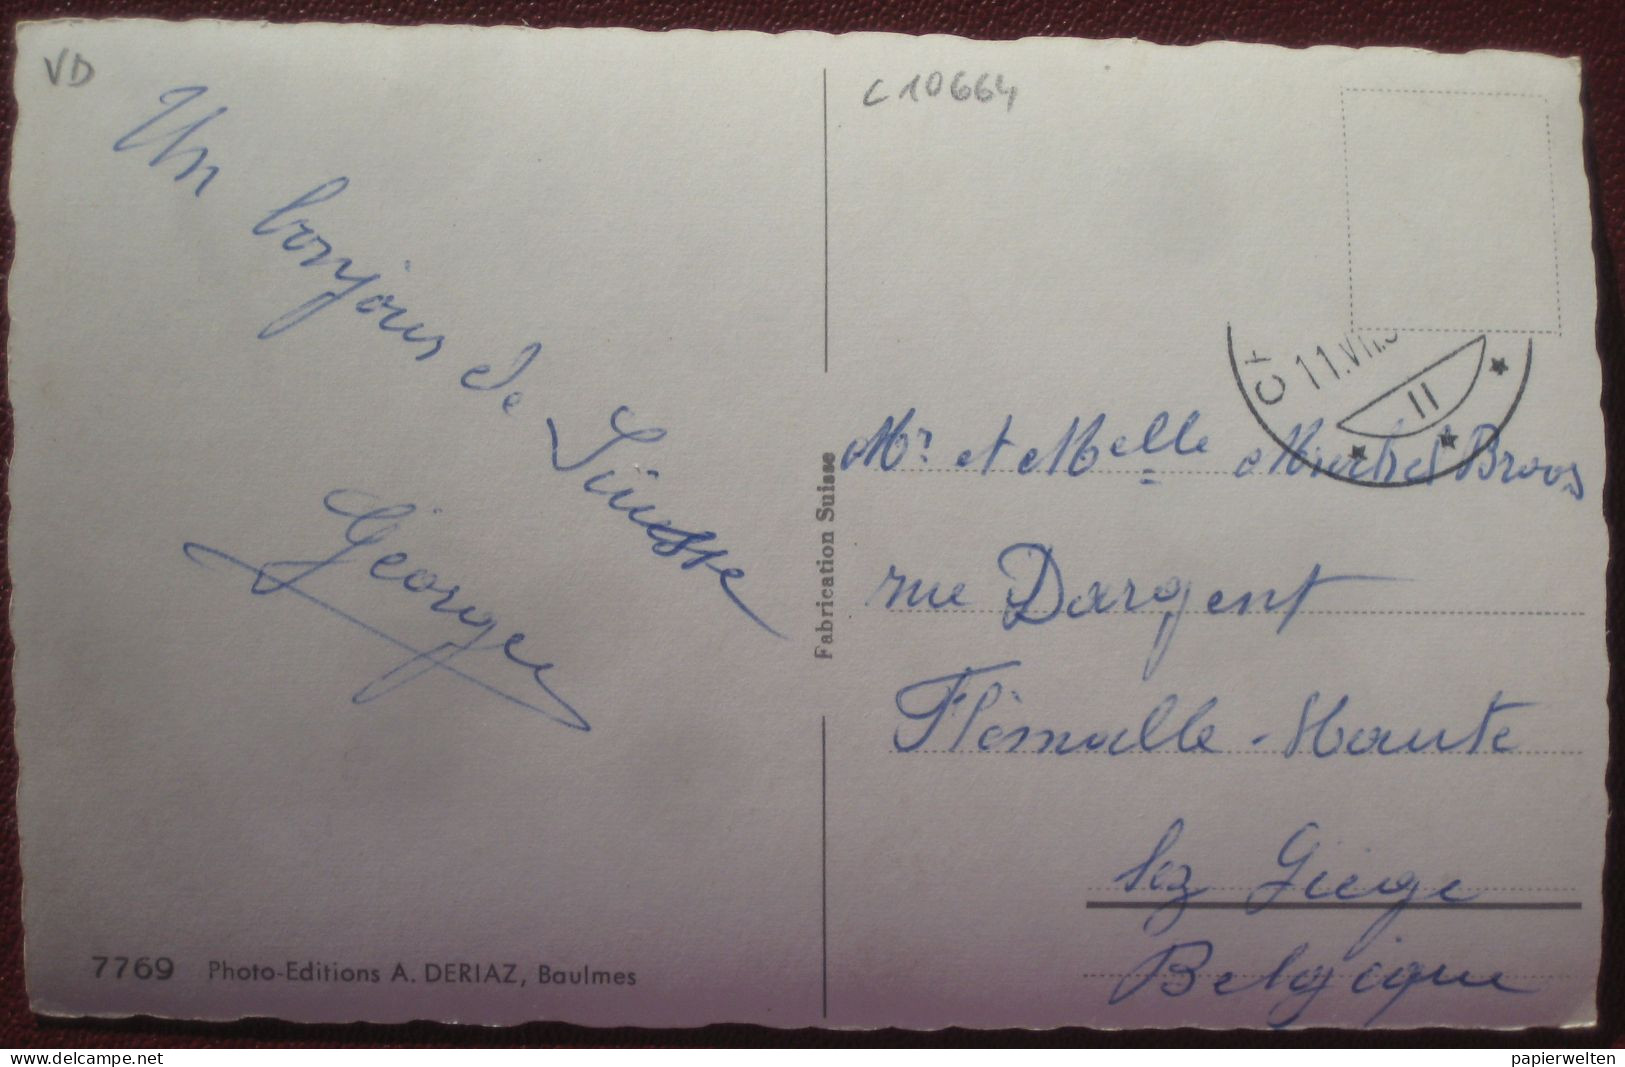 VD
Un bonjour de Suisse
Georges
7769 Photo-Editions A. DERIAZ, Baulmes
Fabrication Suisse
C10664
11.VII.
II
Mr et Melle Michel Brooz
rue Dargent
Flémalle-Haute
lez Liége
Belgique
www.delcampe.net
papierwelten